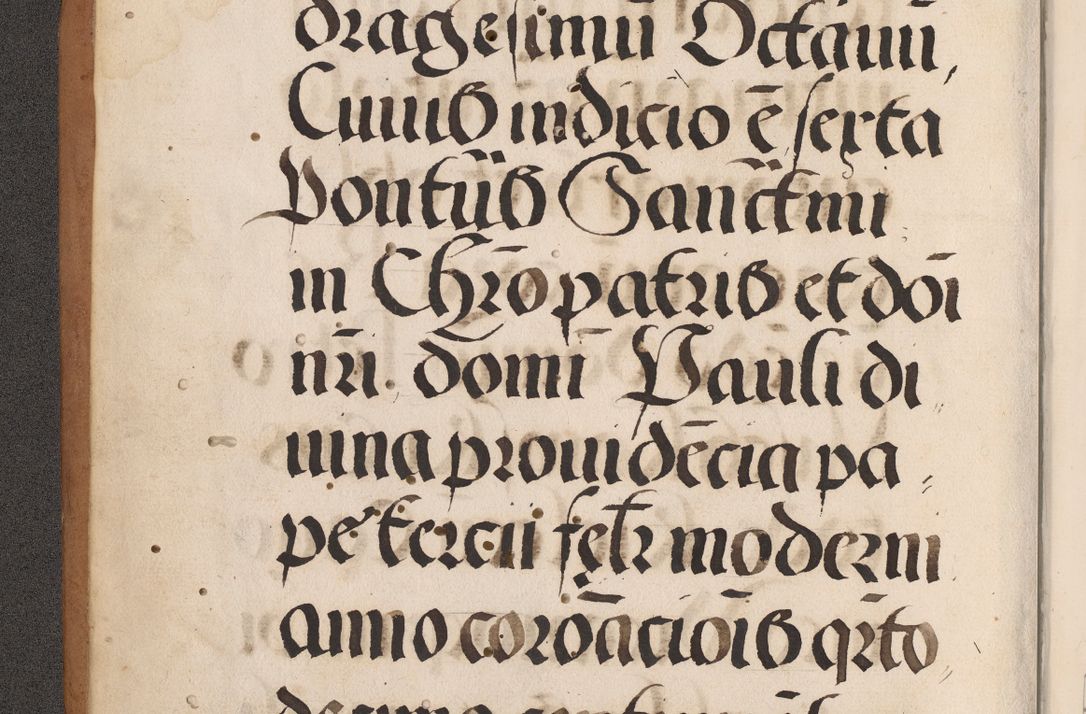 dragesimū Octauū,
Cuius indicio ē sexta
Pontiῦs Sanctmi
in Chrō patris et doī
nrī. domī Pauli di
uina prouidēcia pa
pe tercii felr moderni
anno coronāciois qrto